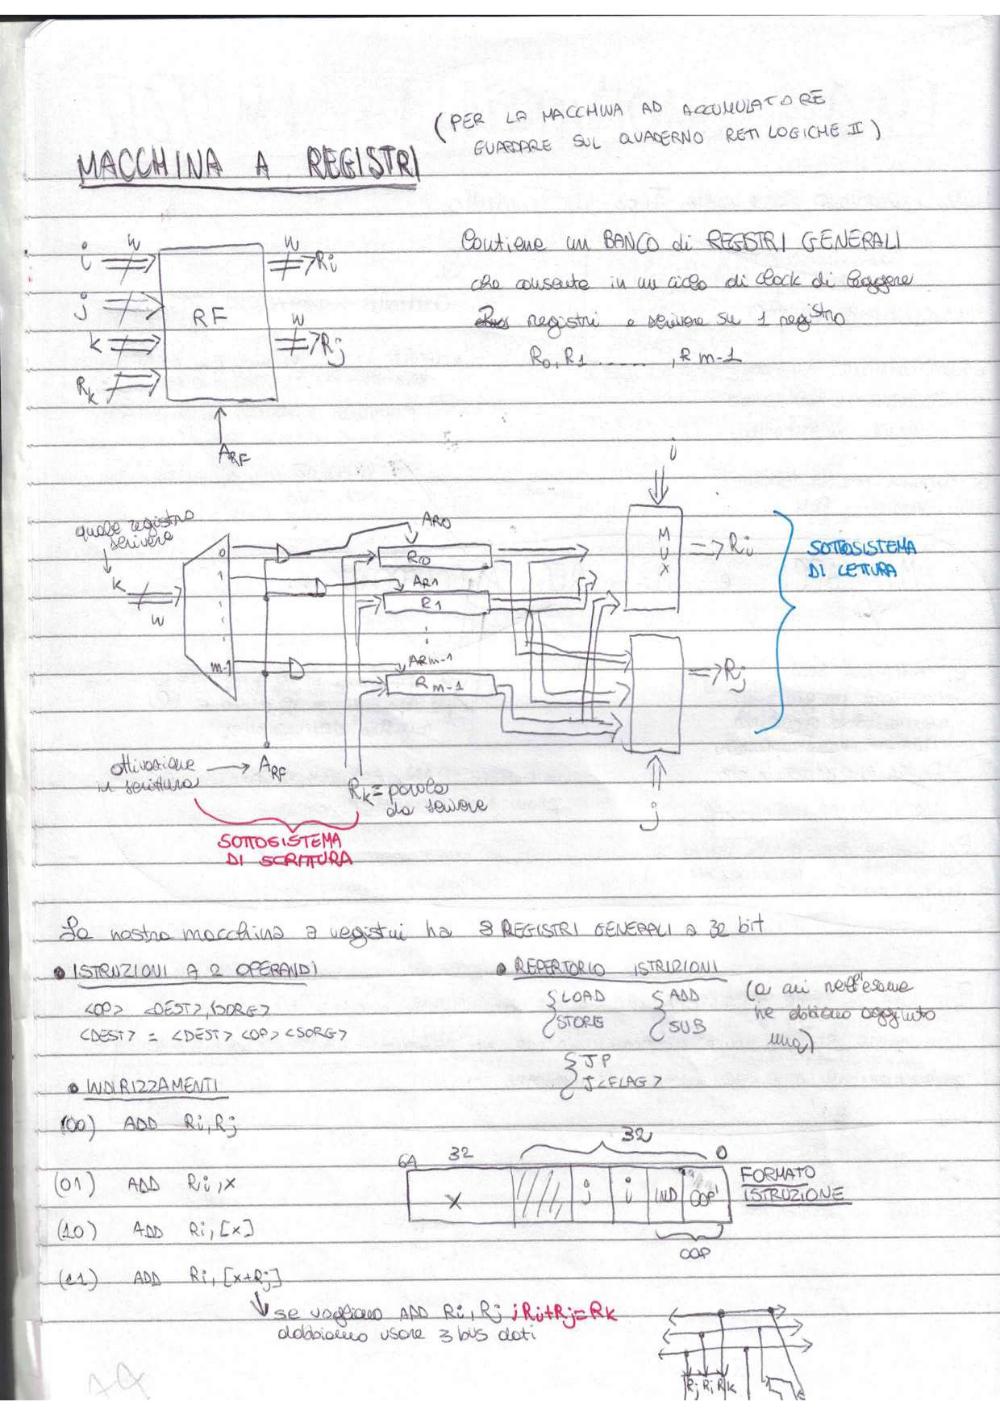 (PER LA MACCHINA AD ACCUMULATORE
GUARDARE SUL QUADERNO RETI LOGICHE II)
MACCHINA A REGISTRI
i w
j
k
Rk
RF
w Ri
w Rj
ARF
Contiene un BANCO di REGISTRI GENERALI
che consente in un ciclo di clock di leggere
registri e scrivere su 1 registro
R0, R1 ......, Rm-1
i
quale registro
scrivere
k
w
0
1
m-1
AR0
R0
AR1
R1
ARm-1
Rm-1
MUX
Ri
Rj
SOTTOSISTEMA
DI LETTURA
attivazione
in scrittura
ARF
Rk = parola
da scrivere
j
SOTTOSISTEMA
DI SCRITTURA
La nostra macchina a registri ha 8 REGISTRI GENERALI a 32 bit
• ISTRUZIONI A 2 OPERANDI
<OP> <DEST>, <SORG>
<DEST> = <DEST> <OP> <SORG>
• REPERTORIO ISTRIZIONI
{ LOAD
STORE
{ ADD
SUB
(a cui nell'esame
ne abbiamo aggiunto
una)
{ JP
J<FLAG>
• INDIRIZZAMENTI
(00) ADD Ri, Rj
(01) ADD Ri, x
(10) ADD Ri, [x]
(11) ADD Ri, [x+Rj]
64 32 32 0
x j i IND OOP'
OOP
FORMATO
ISTRUZIONE
se vogliamo ADD Ri, Rj ; Ri+Rj=Rk
dobbiamo usare 3 bus dati
Rj Ri Rk